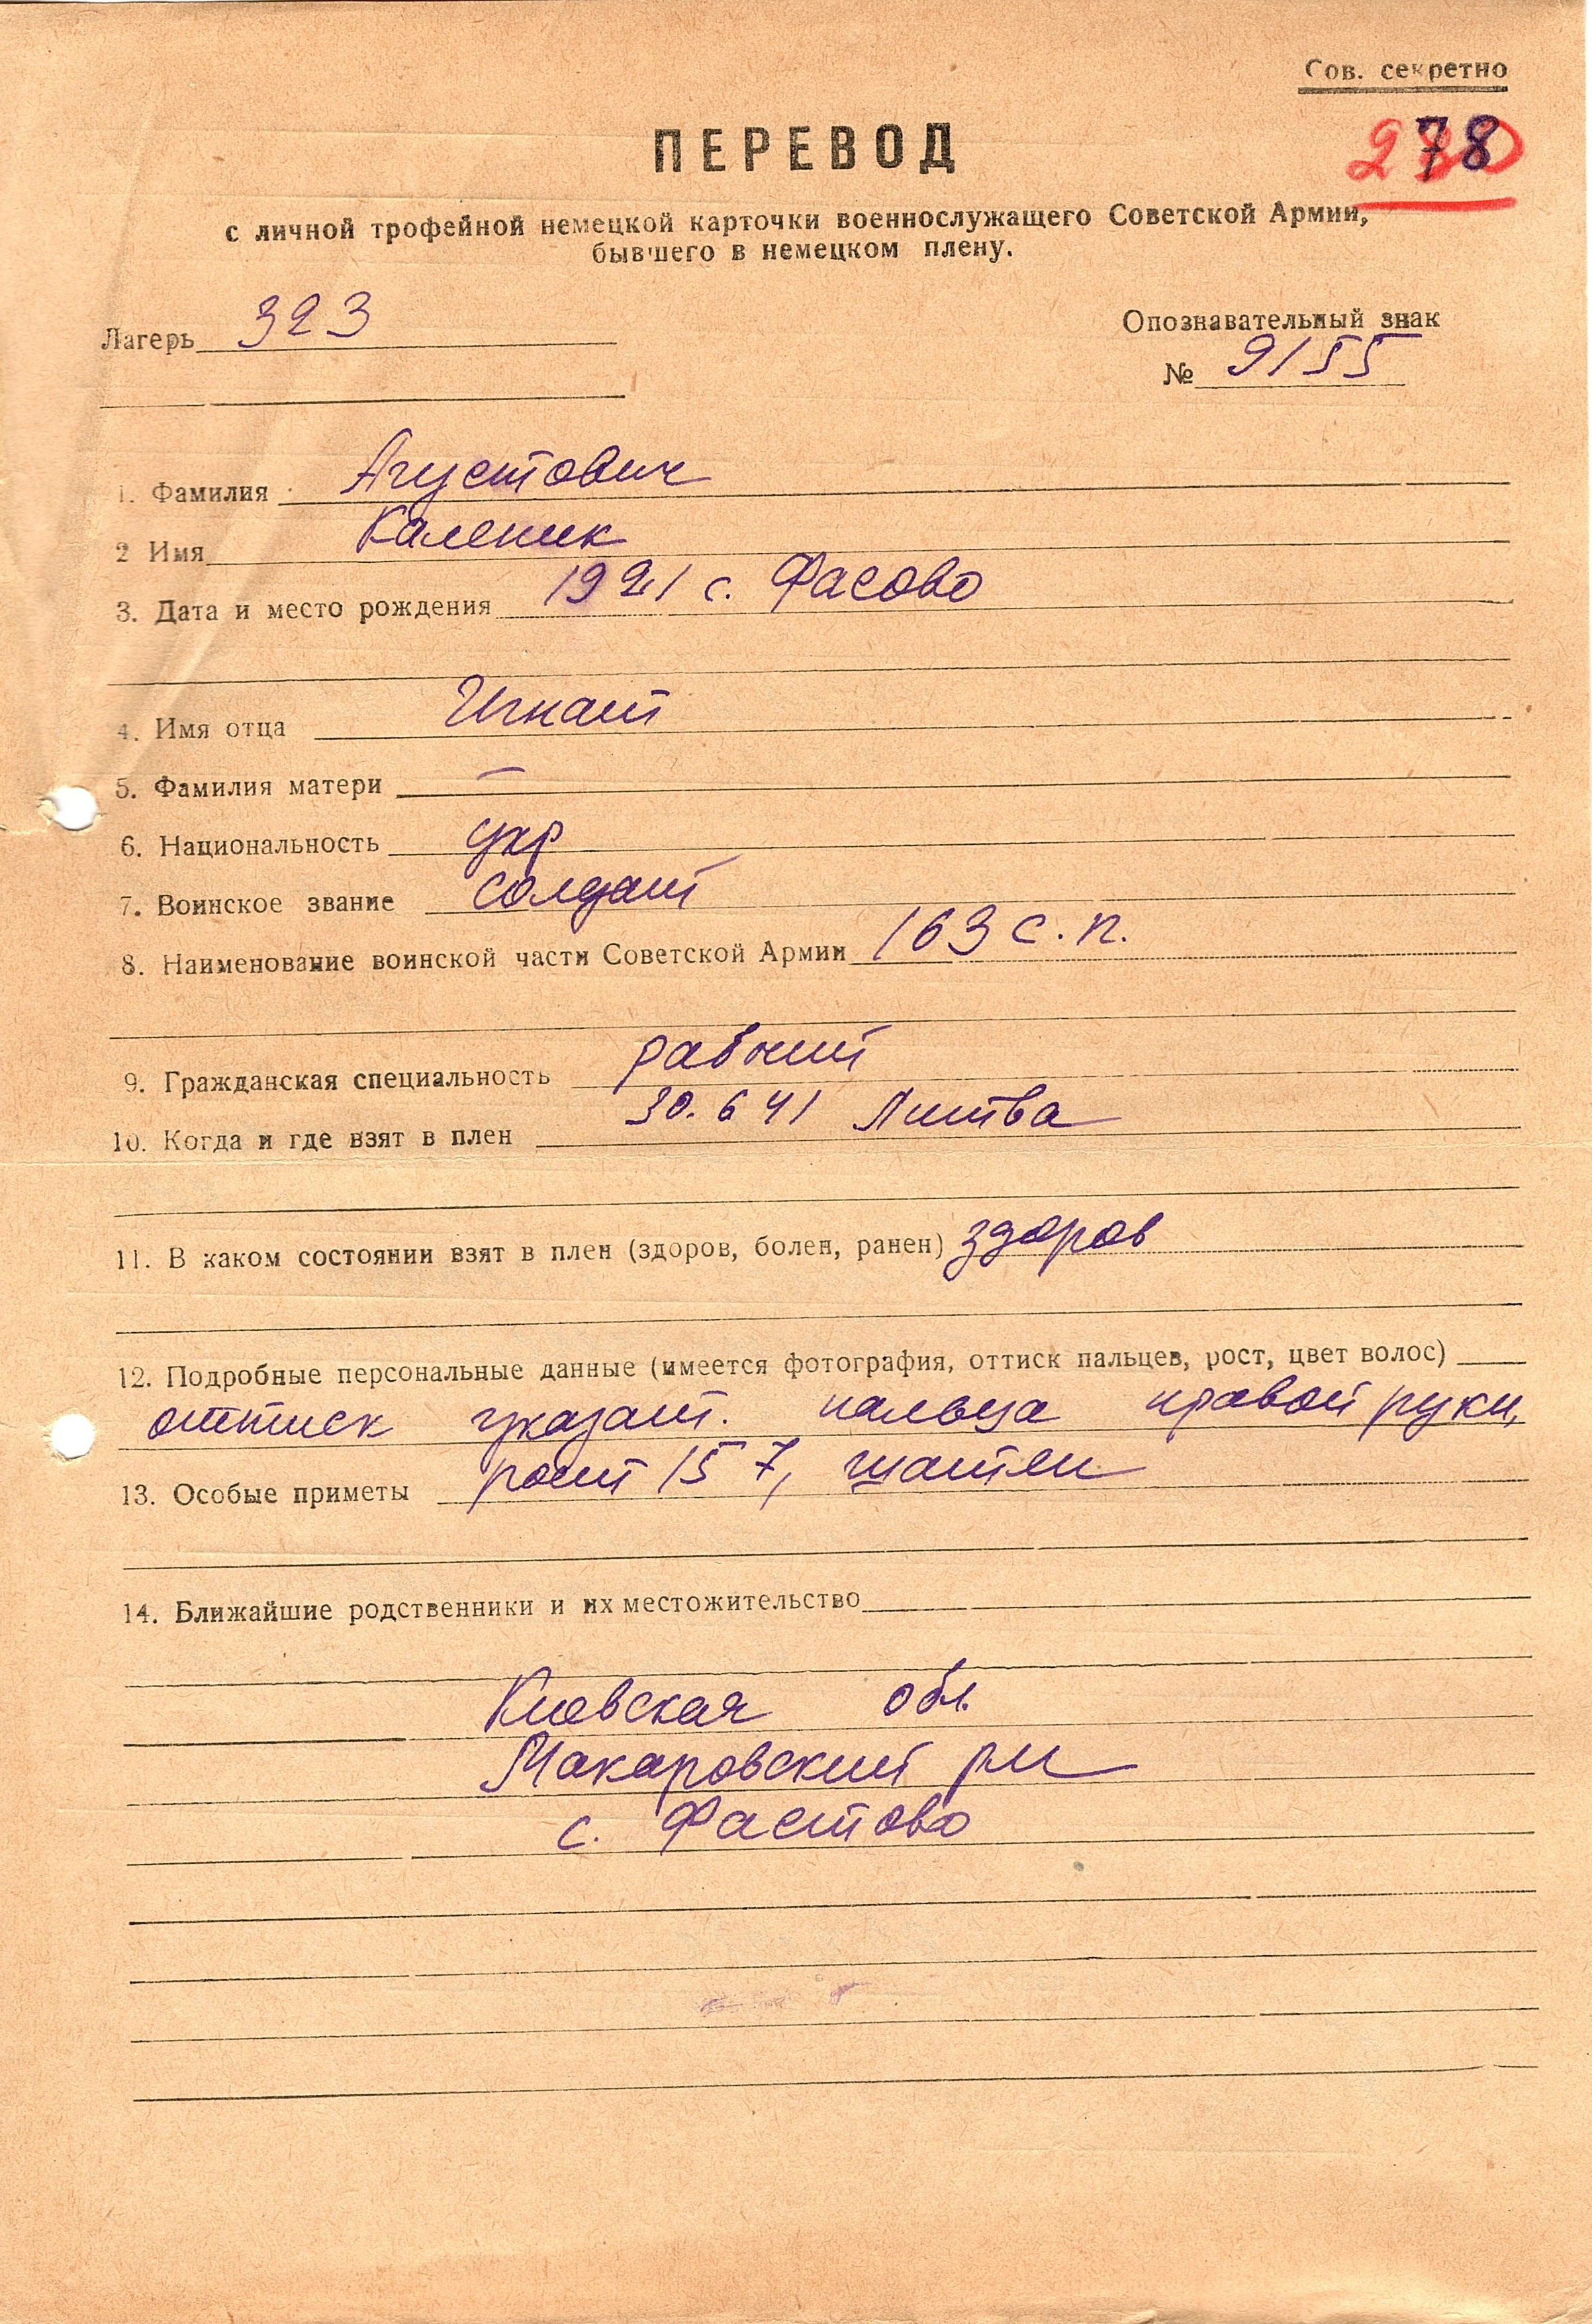 Сов. секретно
278
ПЕРЕВОД
с личной трофейной немецкой карточки военнослужащего Советской Армии,
бывшего в немецком плену.
Лагерь 323
Опознавательный знак
№ 9155
1. Фамилия Агустович
2 Имя Каленик
3. Дата и место рождения 1921 с. Фасово
4. Имя отца Игнат
5. Фамилия матери —
6. Национальность укр
7. Воинское звание солдат
8. Наименование воинской части Советской Армии 163 с.п.
9. Гражданская специальность рабочий
10. Когда и где взят в плен 30.6 41 Литва
11. В каком состоянии взят в плен (здоров, болен, ранен) здоров
12. Подробные персональные данные (имеется фотография, оттиск пальцев, рост, цвет волос)
оттиск указат. пальца правой руки,
13. Особые приметы рост 157, шатен
14. Ближайшие родственники и их местожительство
Киевская обл.
Макаровский рн
с. Фастово